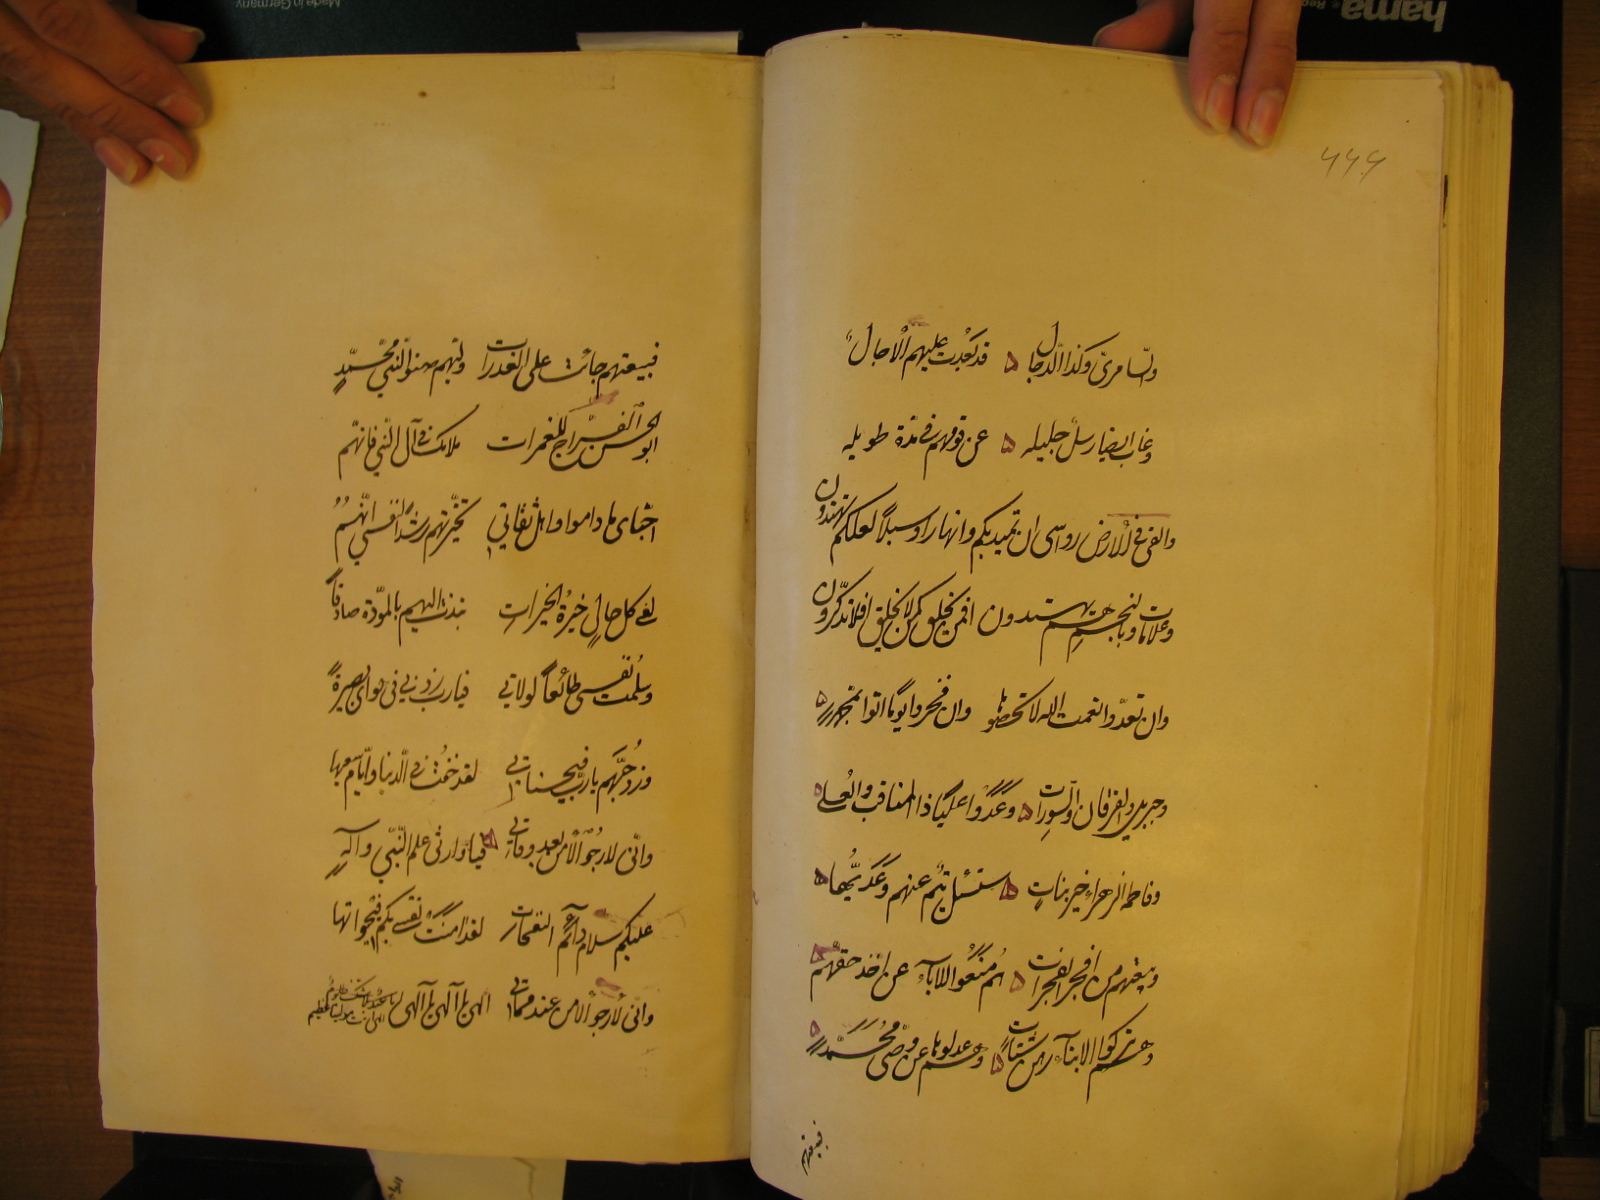 ۴۴۶
والسامریّ وکذا الدجال قد بعدت علیهم الاجال
وغاب ایضا رسل جلیله عن قومهم فی مدة طویله
والقی فی الارض رواسی ان تمیدبکم وانهارا وسبلا لعلکم تهتدون
وعلامات وبالنجم هم یهتدون افمن یخلق کمن لایخلق افلا تذکرون
وان تعدّوا نعمت الله لا تحصوها وان فخروا یوما اتوا بمحمد
وجبریل والفرقان والسورات وعدّوا علیا ذا المناقب والعلی
وفاطمة الزهراء خیر بنات ستسئل تیم عنهم وعدیّها
وبیعتهم من افجر الفجرات هم منعوا الاباء عن اخذ حقهم
وهم ترکوا الابناء رهن شتات وهم عدلوها عن وصیّ محمّد
فبیعتهم
فبیعتهم جائت علی الغدرات ولیّهم صنو النّبیّ محمّد
ابو الحسن الفرّاج للغمرات ملامک فی آل النّبی فانّهم
احبّای ما داموا واهل ثقاتی تخیّرتهم رشدا لنفسی انّهم
علی کل حال خیرة الخیرات نبذت الیهم بالمودّة صادقا
وسلمت نفسی طائعا لولاتی فیارب زدنی فی هوای بصیرة
وزد حبّهم یارب فی حسناتی لقد خفت فی الدّنیا وایّام سعیها
وانّی لارجو الامن بعد وفاتی فیا وارثی علم النّبّی وآله
علیکم سلام دائم النفحات لقد امنت نفسی بکم فی حیواتها
وانّی لارجو الامن عند مماتی الهی الهی الهی
hama
Made in Germany